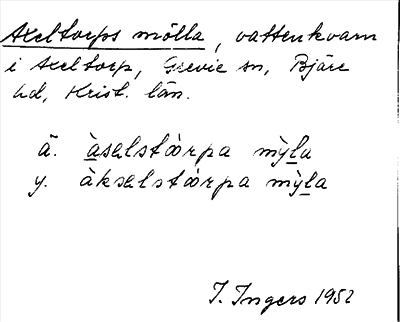 Axeltorps mölla, vattenkvarn
i Axeltorp, Grevie sn, Bjäre
hd, Krist. län.
ä. àsəlstóørpa mỳla
y. àksəlstóørpa mỳla
I. Ingers 1952